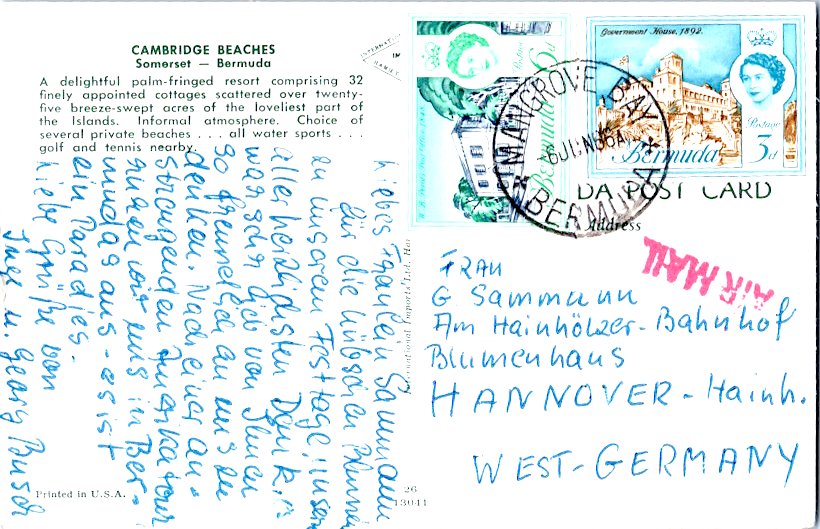 CAMBRIDGE BEACHES
Somerset — Bermuda
A delightful palm-fringed resort comprising 32
finely appointed cottages scattered over twenty-
five breeze-swept acres of the loveliest part of
the Islands. Informal atmosphere. Choice of
several private beaches . . . all water sports . . .
golf and tennis nearby.
Liebes Fräulein Sammann
für die hübschen Blumen
zu unserem Festtage, unsern
allerherzlichsten Dank. Es
war sehr lieb von Ihnen
so freundlich an uns zu
denken. Nach einer an-
strengenden Amerikatour
ruhen wir uns in Ber-
mudas aus - es ist
ein Paradies.
Liebe Grüße von
Inge u. Georg Busch
Printed in U.S.A.
International Imports Ltd.
26
13041
Government House, 1892.
Postage
Bermuda
3d
Postage
6d
Bermuda
MANGROVE BAY
6 JUN 6
BERMUDA
DA POST CARD
Address
AIR MAIL
FRAU
G Sammann
Am Hainhölzer-Bahnhof
Blumenhaus
HANNOVER-Hainh.
WEST-GERMANY